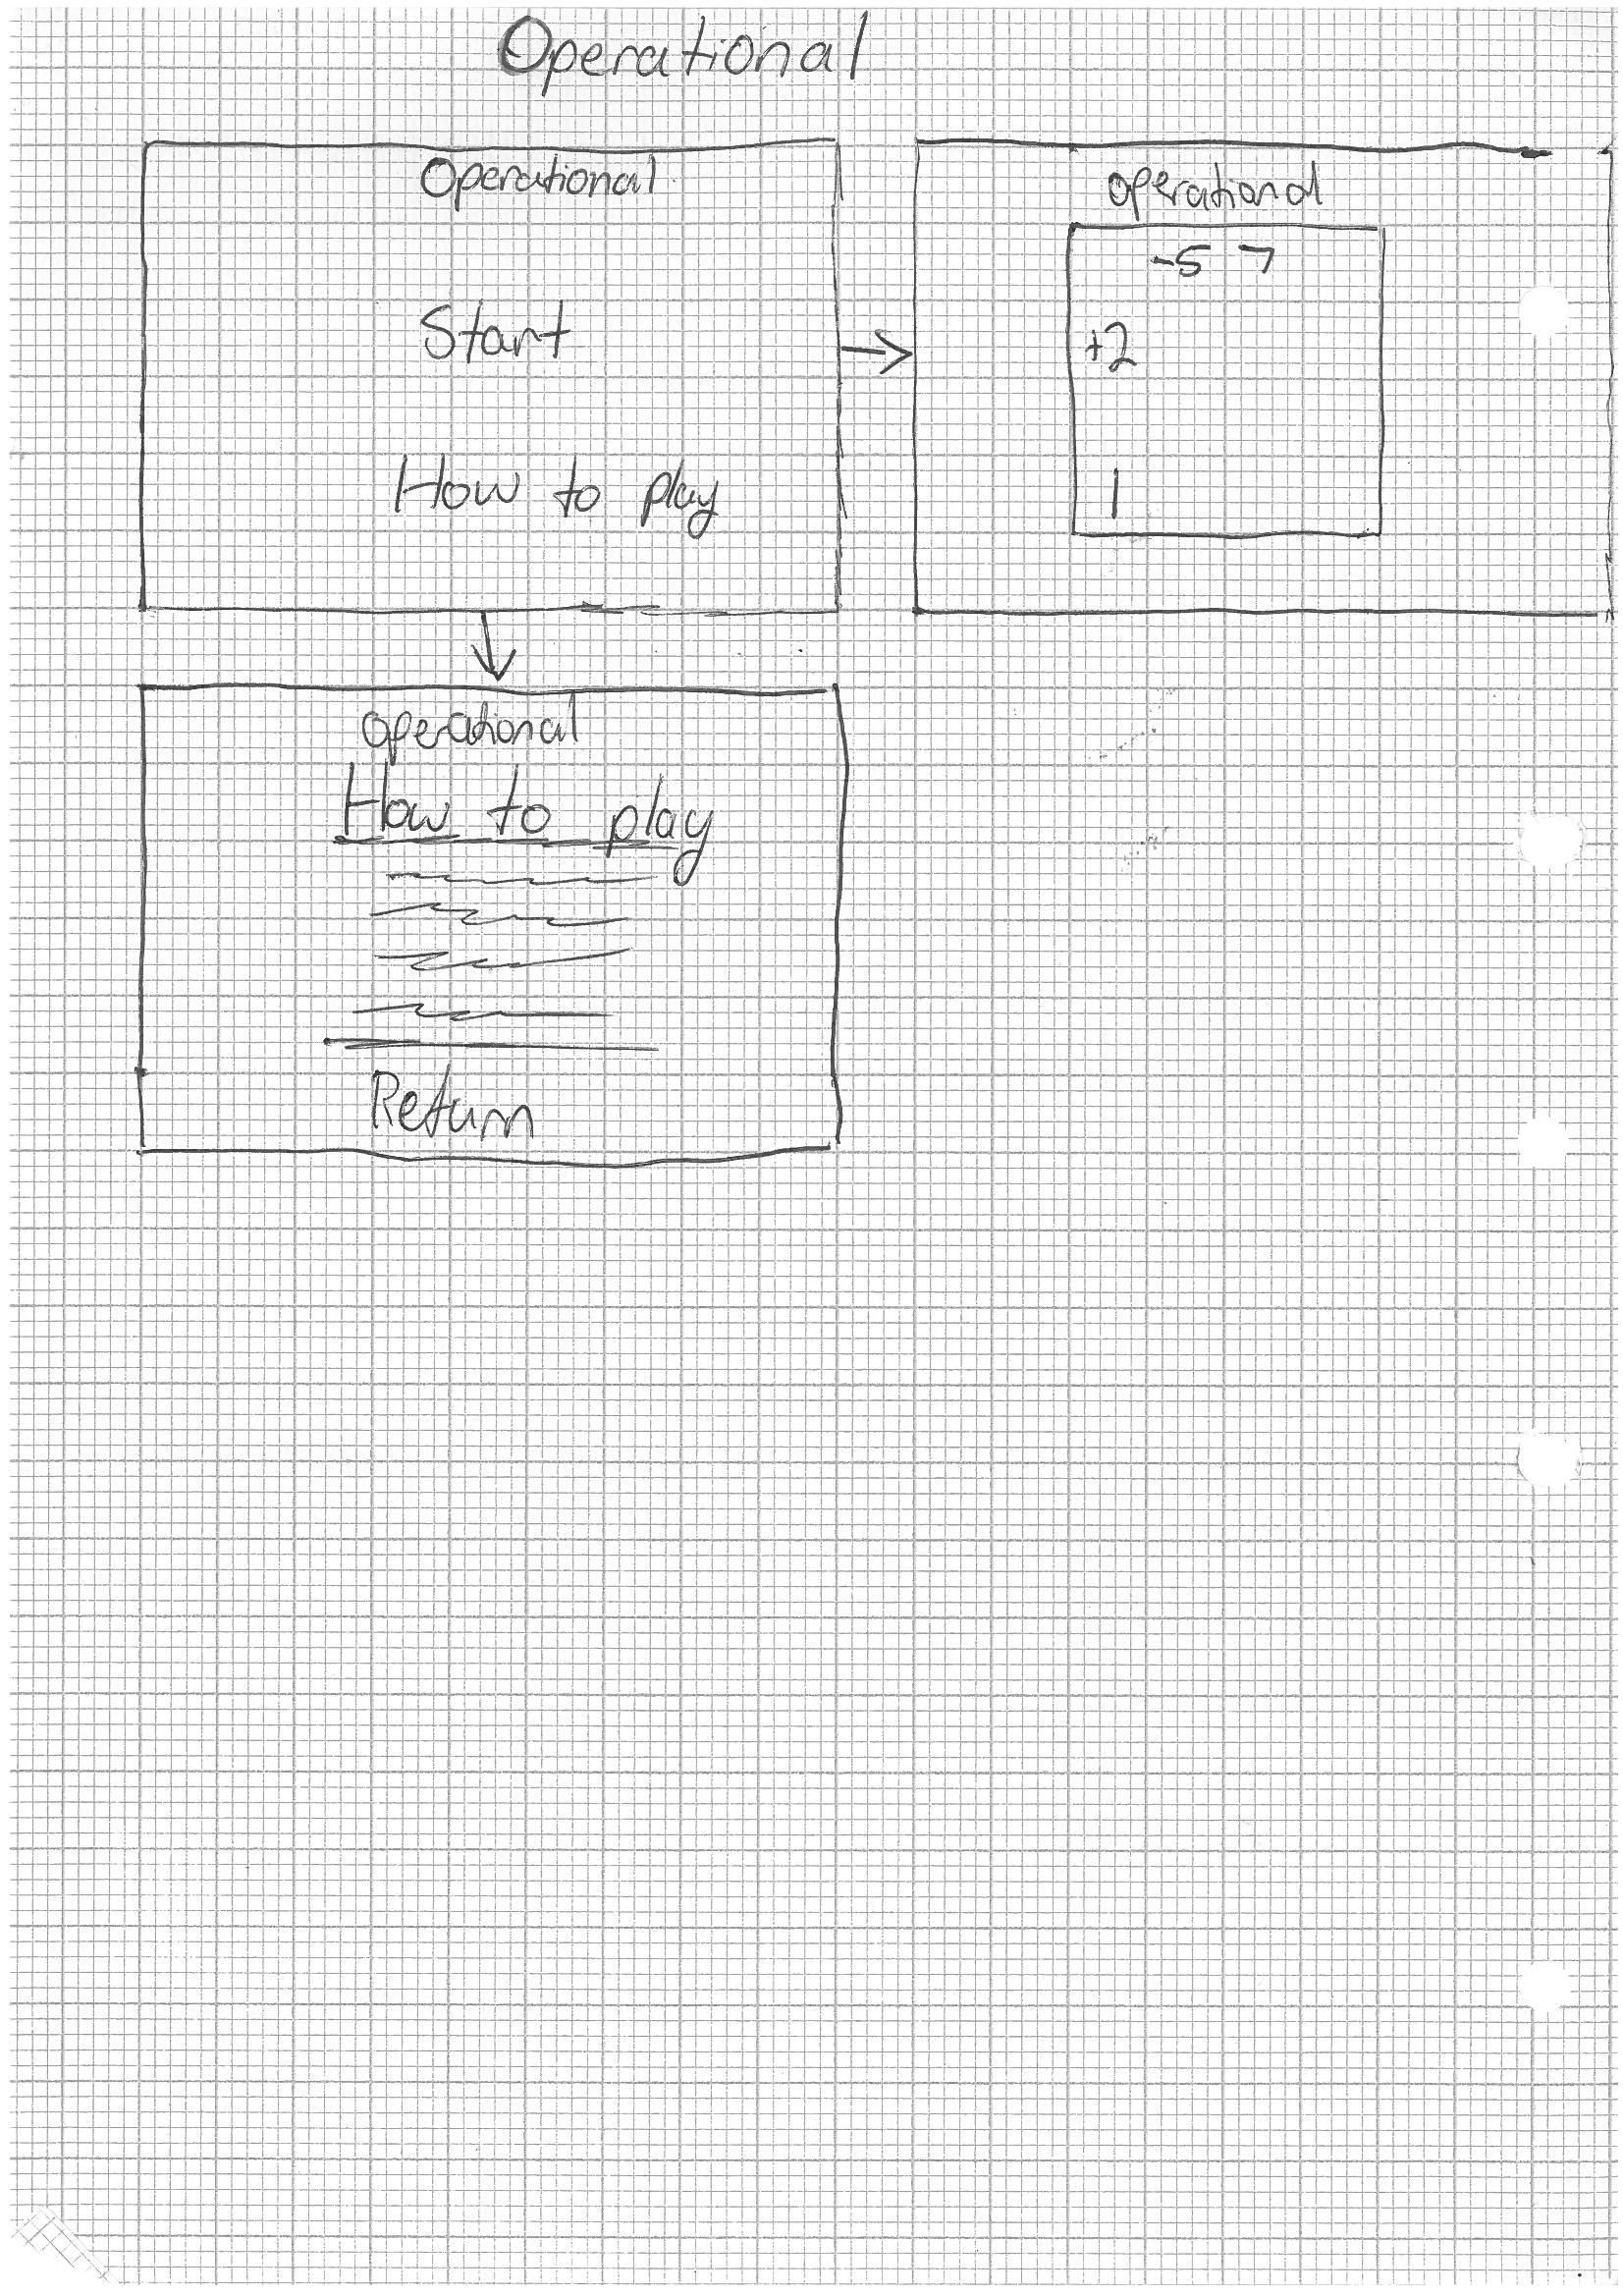 Operational
Operational
Start
How to play
operational
-5 7
+2
1
operational
How to play
Return